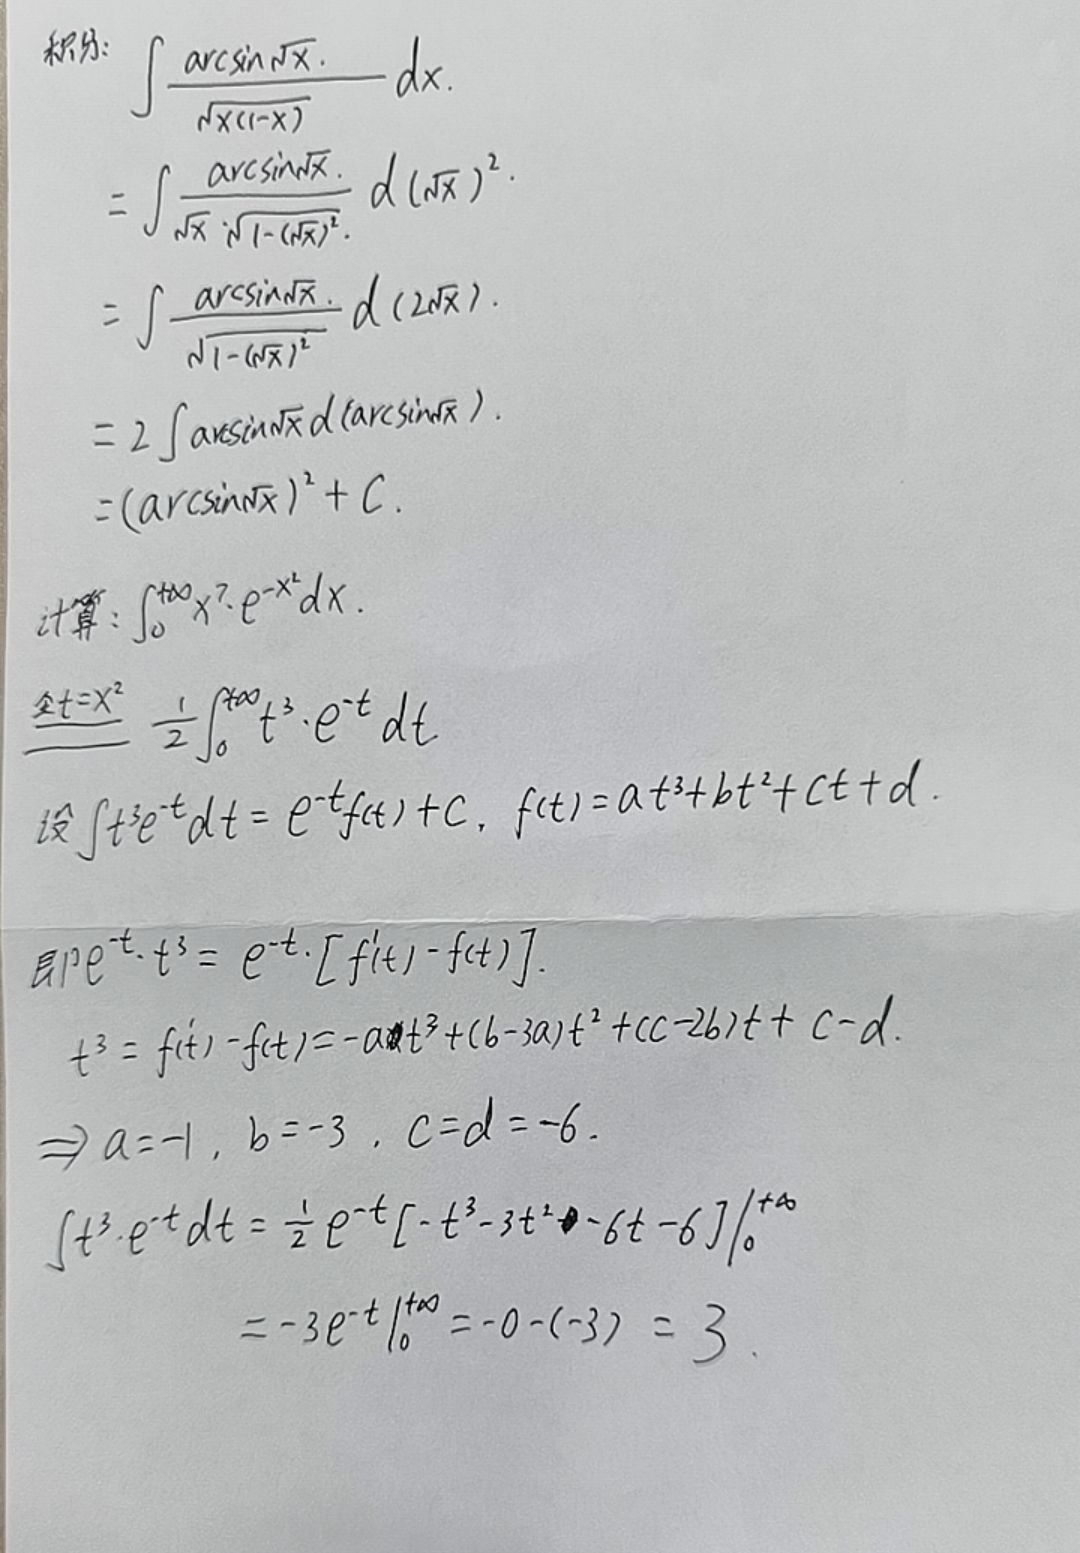 积分: ∫ arcsin√x. / √x(1-x) dx.
= ∫ arcsin√x. / √x · √1-(√x)². d(√x)².
= ∫ arcsin√x. / √1-(√x)² d(2√x).
= 2∫arcsin√x d(arcsin√x).
=(arcsin√x)² + C.
计算: ∫₀⁺∞ x⁷·e^-x² dx.
令t=x² ½∫₀⁺∞ t³·e^-t dt
设∫t³e^-t dt = e^-t f(t)+C, f(t)=at³+bt²+ct+d.
即e^-t·t³ = e^-t·[f'(t)-f(t)].
t³ = f'(t)-f(t)=-at³+(b-3a)t²+(c-2b)t+c-d.
⇒ a=-1, b=-3, c=d=-6.
∫t³·e^-t dt = ½ e^-t [-t³-3t²-6t-6]|₀⁺∞
=-3e^-t|₀⁺∞ =-0-(-3) = 3.